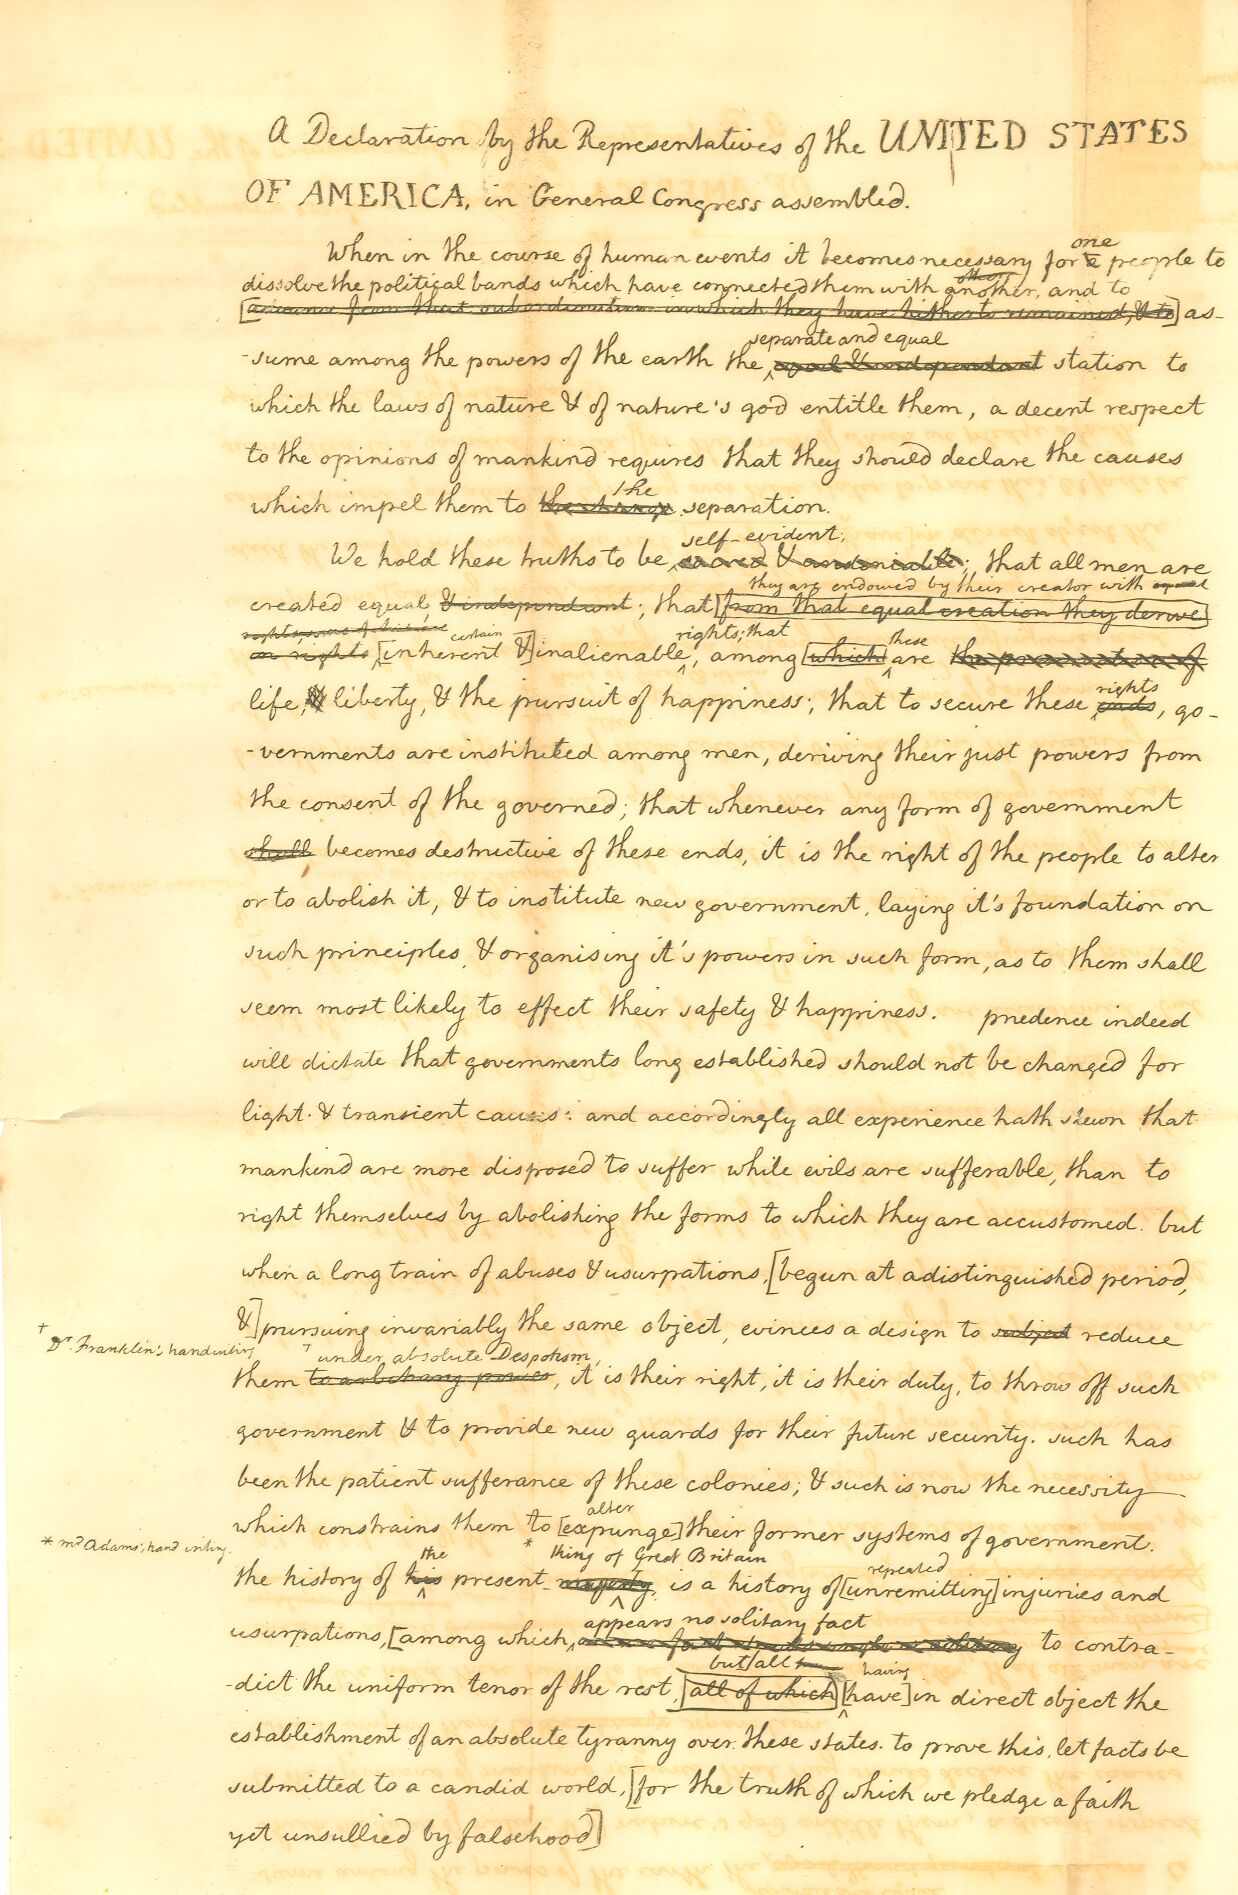 A Declaration by the Representatives of the UNITED STATES
OF AMERICA, in General Congress assembled.
one
When in the course of human events it becomes necessary for a people to
other
dissolve the political bands which have connected them with another, and to
[advance from that subordination in which they have hitherto remained, & to] as-
separate and equal
-sume among the powers of the earth the equal & independant station to
which the laws of nature & of nature's god entitle them, a decent respect
to the opinions of mankind requires that they should declare the causes
the
which impel them to the change separation.
self-evident;
We hold these truths to be sacred & undeniable; that all men are
they are endowed by their creator with equal
created equal & independant; that [from that equal creation they derive]
rights, some of which are certain rights; that these
in rights [inherent &] inalienable, among [which] are the preservation of
rights
life, & liberty, & the pursuit of happiness; that to secure these ends, go-
-vernments are instituted among men, deriving their just powers from
the consent of the governed; that whenever any form of government
shall becomes destructive of these ends, it is the right of the people to alter
or to abolish it, & to institute new government, laying it's foundation on
such principles & organising it's powers in such form, as to them shall
seem most likely to effect their safety & happiness. prudence indeed
will dictate that governments long established should not be changed for
light & transient causes: and accordingly all experience hath shewn that
mankind are more disposed to suffer while evils are sufferable, than to
right themselves by abolishing the forms to which they are accustomed. but
when a long train of abuses & usurpations, [begun at a distinguished period,
&] pursuing invariably the same object, evinces a design to subject reduce
† Dr. Franklin's handwriting † under absolute Despotism,
them to arbitrary power, it is their right, it is their duty, to throw off such
government & to provide new guards for their future security. such has
been the patient sufferance of these colonies; & such is now the necessity
alter
which constrains them to [expunge] their former systems of government.
* mr Adams's hand writing. the * king of Great Britain repeated
the history of his present majesty, is a history of [unremitting] injuries and
appears no solitary fact
usurpations, [among which, to contra-
but all having
-dict the uniform tenor of the rest, [all of which] [have] in direct object the
establishment of an absolute tyranny over these states. to prove this, let facts be
submitted to a candid world, [for the truth of which we pledge a faith
yet unsullied by falsehood]